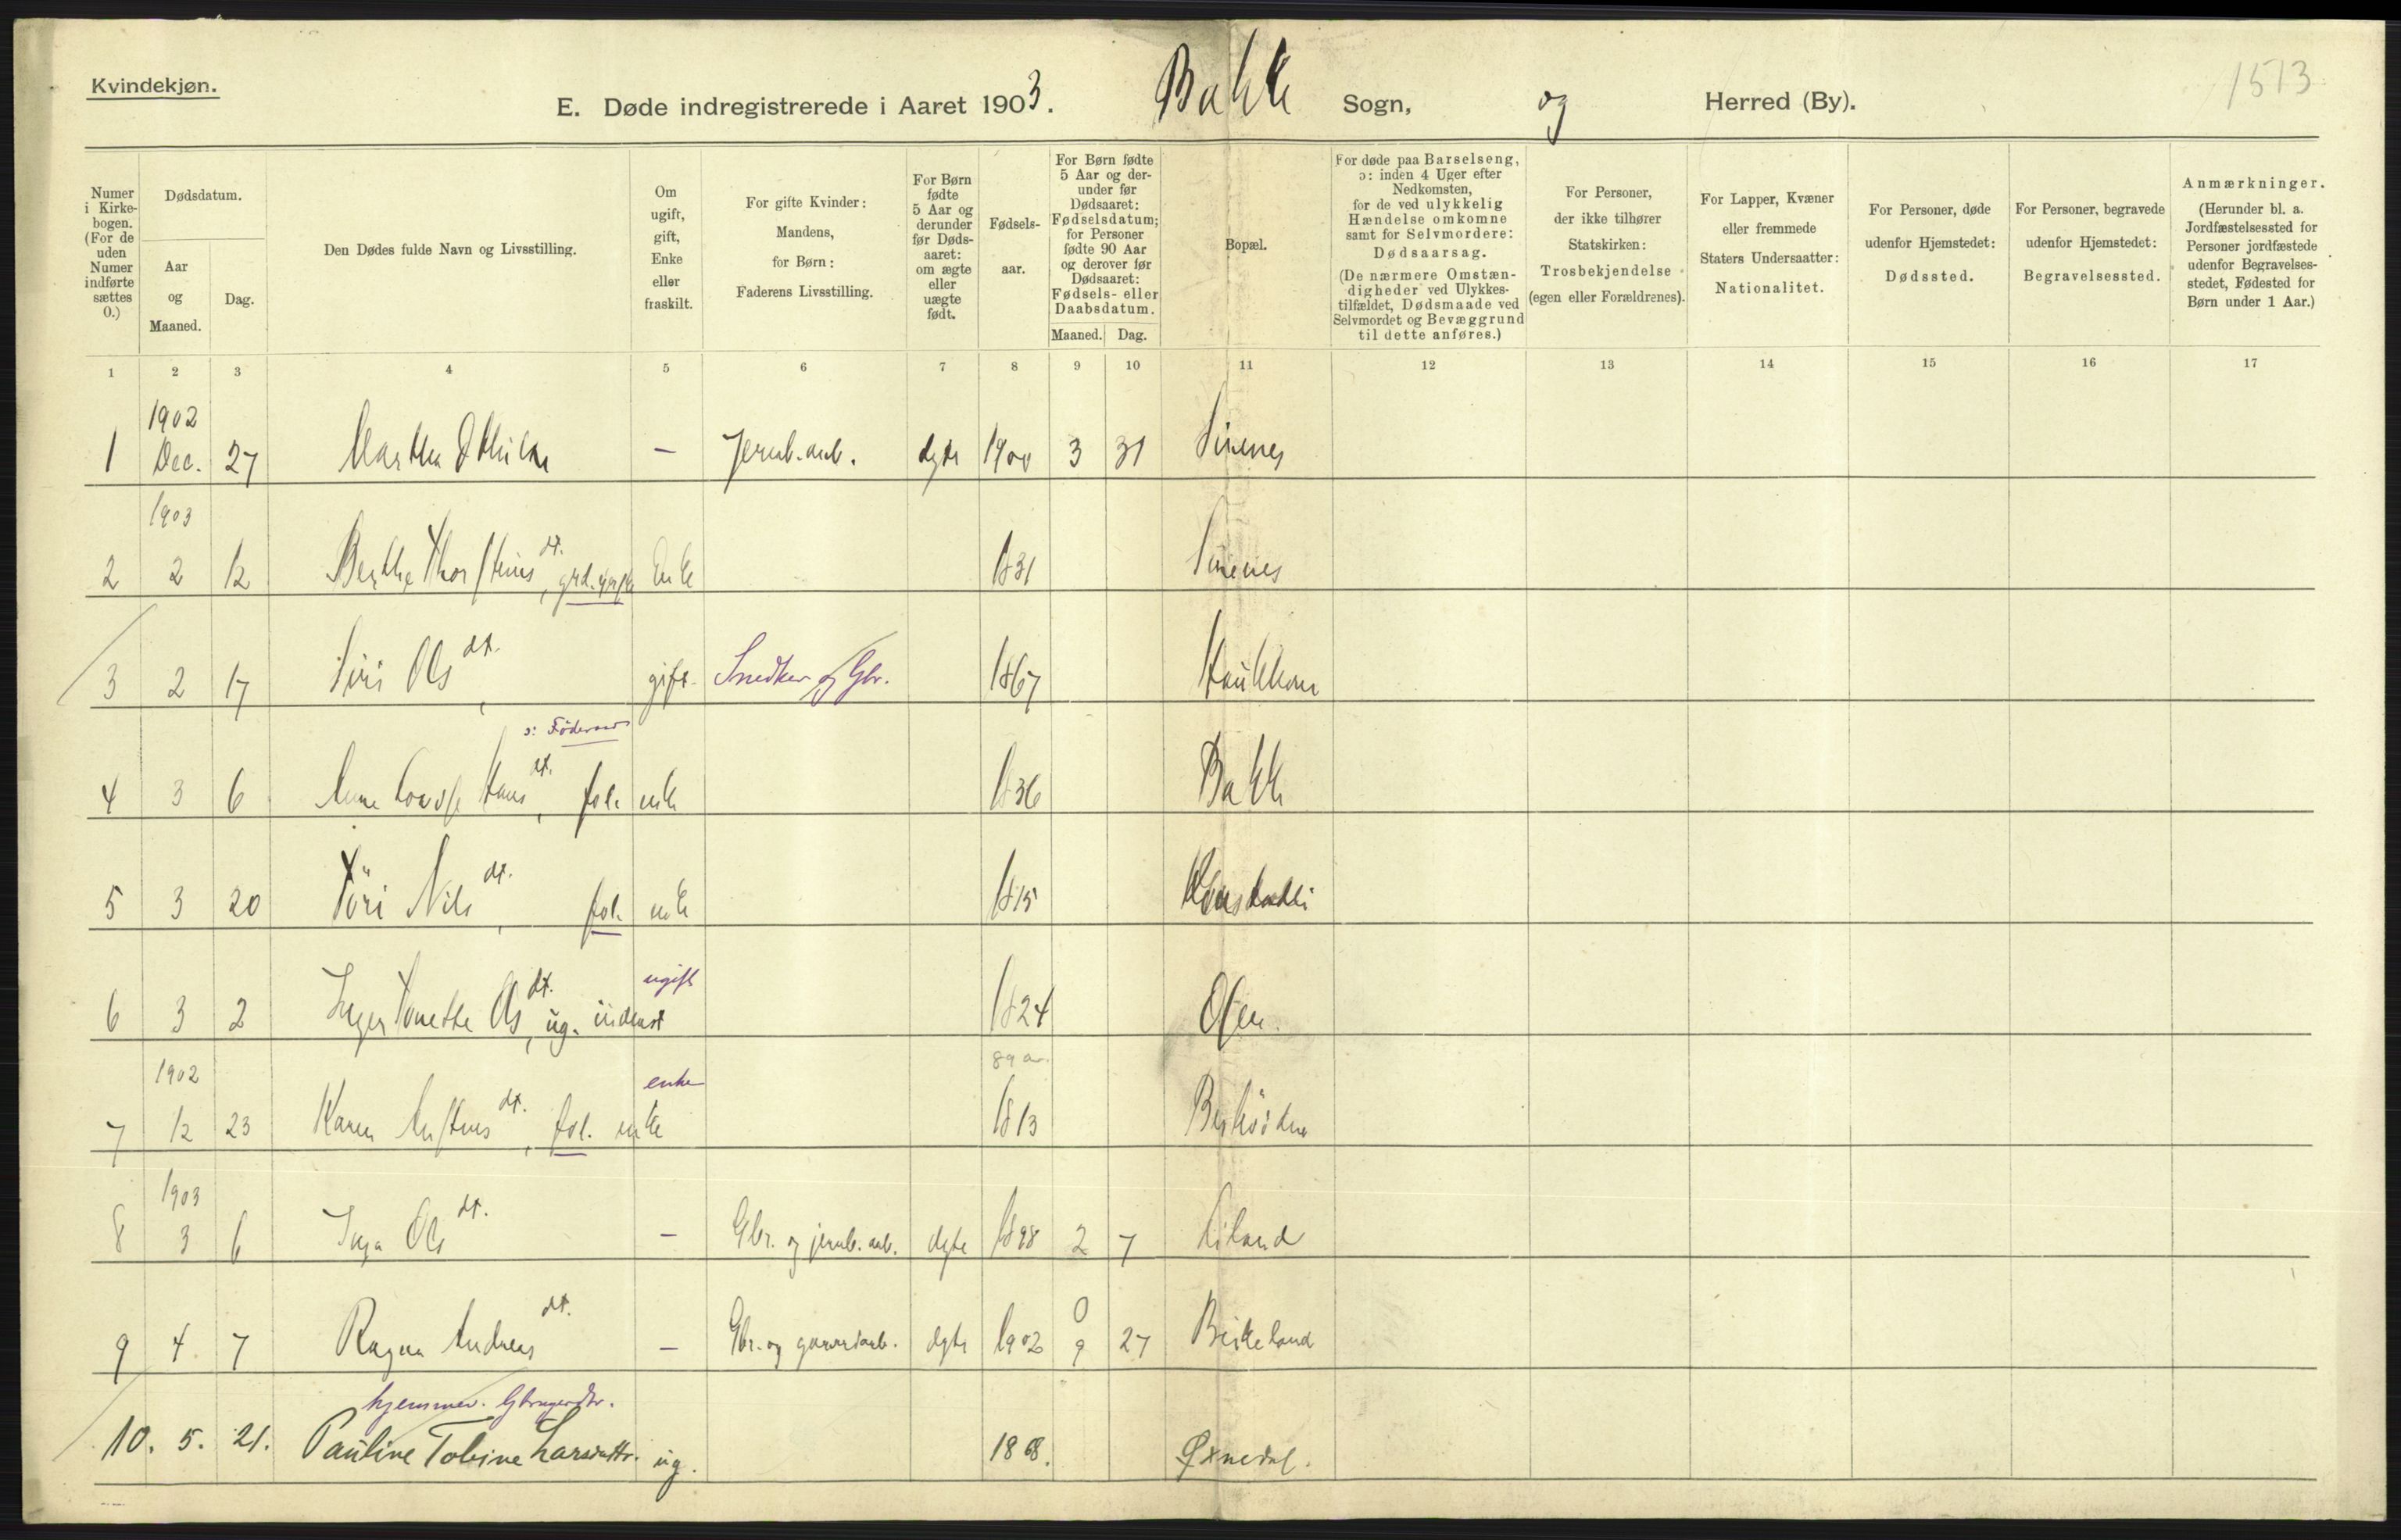 Kvindekjøn.
E. Døde indregistrerede i Aaret 1903. Bakke Sogn, og Herred (By).
1513
Numer i Kirkebogen. (For de uden Numer indførte sættes 0.)
Dødsdatum.
Aar og Maaned.
Dag.
Den Dødes fulde Navn og Livsstilling.
Om ugift, gift, Enke eller fraskilt.
For gifte Kvinder: Mandens, for Børn: Faderens Livsstilling.
For Børn fødte 5 Aar og derunder før Dødsaaret: om ægte eller uægte født.
Fødselsaar.
For Børn fødte 5 Aar og derunder før Dødsaaret: Fødselsdatum; for Personer fødte 90 Aar og derover før Dødsaaret: Fødsels- eller Daabsdatum.
Maaned. Dag.
Bopæl.
For døde paa Barselseng, ɔ: inden 4 Uger efter Nedkomsten, for de ved ulykkelig Hændelse omkomne samt for Selvmordere: Dødsaarsag. (De nærmere Omstændigheder ved Ulykkestilfældet, Dødsmaade ved Selvmordet og Bevæggrund til dette anføres.)
For Personer, der ikke tilhører Statskirken: Trosbekjendelse (egen eller Forældrenes).
For Lapper, Kvæner eller fremmede Staters Undersaatter: Nationalitet.
For Personer, døde udenfor Hjemstedet: Dødssted.
For Personer, begravede udenfor Hjemstedet: Begravelsessted.
Anmærkninger. (Herunder bl. a. Jordfæstelsessted for Personer jordfæstede udenfor Begravelsesstedet, Fødested for Børn under 1 Aar.)
1 2 3 4 5 6 7 8 9 10 11 12 13 14 15 16 17
1902
1 Dec. 27 Martha Othilie — Jernb.arb. ægte 1900 3 31 Sirenes
1903
2 2 12 Berthe Thorsteins dt., Enke 1831 Sirenes
3 2 17 Siri Ols dt., gift Snedker og Gbr. 1867
ɔ: Føderaad
4 3 6 Anne Hans dt., fol. enke 1836 Bakke
5 3 20 Töri Nils dt., fol. enke 1815
ugift
6 3 2 Inger Tonette Ols dt., ug. inderst 1824 Osen.
1902 enke 89 aar
7 12 23 Karen dt., fol. enke 1813
1903
8 3 6 Inga Ols dt. — Gbr. og jernb.arb. ægte 1898 2 7 Liland
9 4 7 Ragna Andreas dt. — Gbr. og ægte 1902 0 9 27 Birkeland
hjemmev. Gbrugerdtr.
10. 5. 21. Pauline Tobine Larsdattr. ug. 1868. Øxnedal.